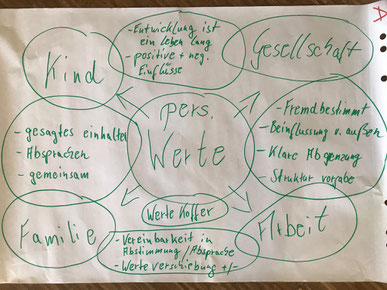 Kind
- Entwicklung ist
ein Leben lang
- positive + neg.
Einflüsse
Gesellschaft
pers.
Werte
- gesagtes einhalten
- Absprachen
- gemeinsam
- Fremdbestimmt
- Beinflussung v. außen
- Klare Abgenzung
- Struktur vorgabe
Werte Koffer
Familie
- Vereinbarkeit in
Abstimmung / Absprache
- Werteverschiebung +/-
Arbeit